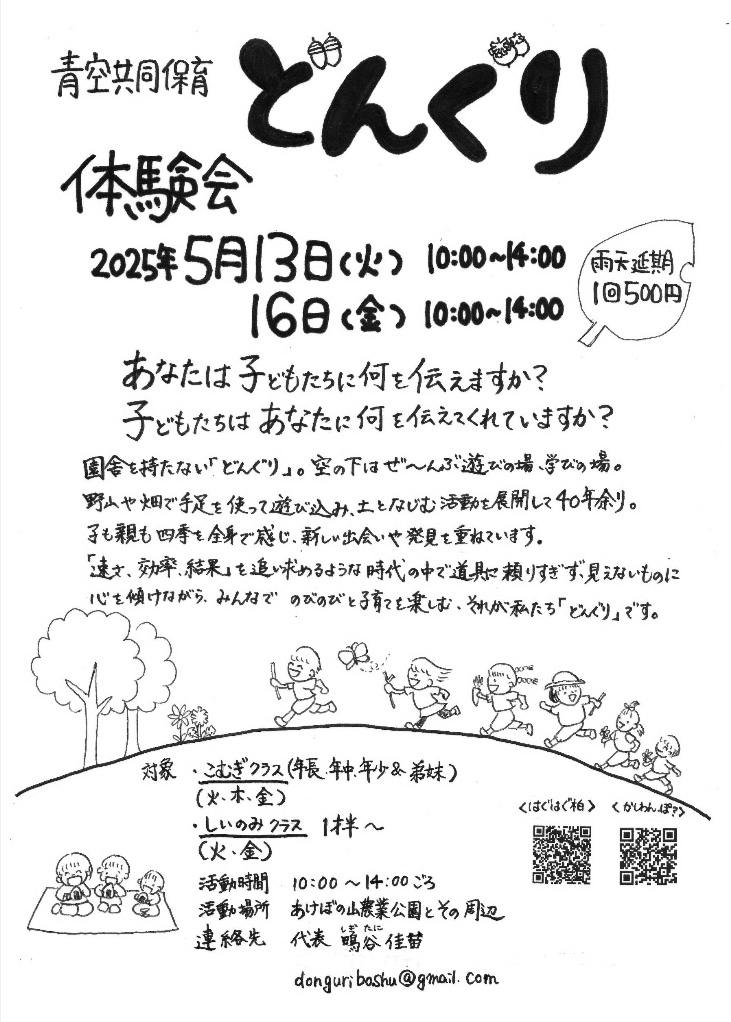 青空共同保育
どんぐり
体験会
2025年5月13日(火) 10:00~14:00
16日(金) 10:00~14:00
雨天延期
1回500円
あなたは子どもたちに何を伝えますか?
子どもたちはあなたに何を伝えてくれていますか?
園舎を持たない「どんぐり」。空の下はぜ~んぶ遊びの場、学びの場。
野山や畑で手足を使って遊び込み、土となじむ活動を展開して40年余り。
子も親も四季を全身で感じ、新しい出会いや発見を重ねています。
「速さ、効率、結果」を追い求めるような時代の中で道具に頼りすぎず、見えないものに
心を傾けながら、みんなでのびのびと子育てを楽しむ、それが私たち「どんぐり」です。
対象 ・こむぎクラス(年長、年中、年少&弟妹)
(火、木、金)
・しいのみクラス 1才半~
(火、金)
<はぐはぐ柏> <かしわん、ぽ?>
活動時間 10:00~14:00ごろ
活動場所 あけぼの山農業公園とその周辺
連絡先 代表 鴫谷佳苗
しぎ たに
donguriboshu@gmail.com